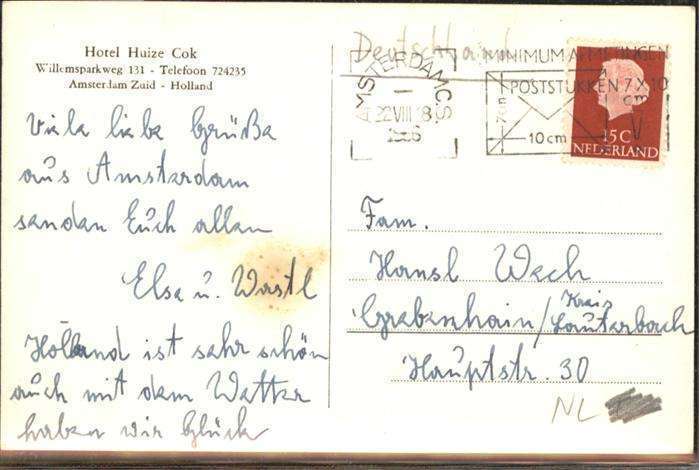 Hotel Huize Cok
Willemsparkweg 131 - Telefoon 724235
Amsterdam Zuid - Holland
Viele liebe Grüße
aus Amsterdam
senden Euch allen
Else u. Wastl
Holland ist sehr schön
auch mit dem Wetter
haben wir Glück
Deutschland
AMSTERDAM C.S.
I
22 VIII 18
1966
MINIMUM AFMETINGEN
POSTSTUKKEN 7 X 10
cm
7cm
10cm
15C
NEDERLAND
Fam.
Hansl Wech
Grebenhain/Kreis
Lauterbach
Hauptstr. 30
NL